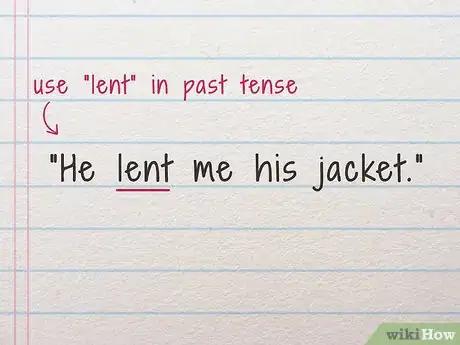 use "lent" in past tense
"He lent me his jacket."
wikiHow